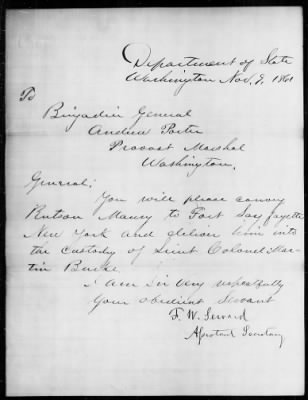 Department of State
Washington Nov. 9, 1861
To
Brigadier General
Andrew Porter
Provost Marshal
Washington.
General;
You will please convey
Rutson Maury to Fort Lafayette
New York and deliver him into
the custody of Lieut Colonel Mar-
tin Burke
I am Sir very respectfully
Your obedient Servant
F. W. Seward
Assistant Secretary